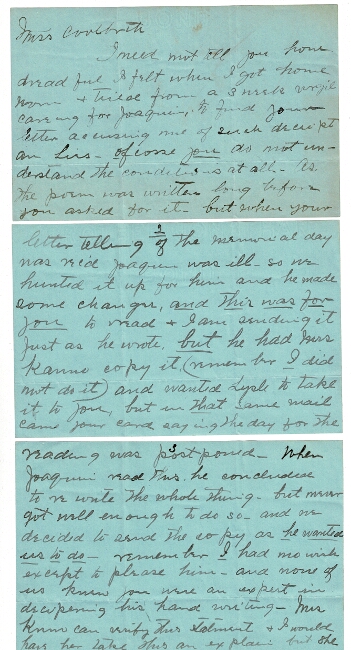 Miss Coolbrith
I need not tell you how
dreadful I felt when I got home
worn + tired from a 3 week vigil
caring for Joaquin, to find your
letter accusing me of such deceipt
an lies - of corse you do not un-
derstand the conditions at all. As
the poem was written long before
you asked for it - but when your
2
letter telling of the memorial day
was rec'd Joaquin was ill - so we
hunted it up for him and he made
some changes, and this was for
you to read + I am sending it
just as he wrote, but he had Mrs
Kanno copy it, (remember I did
not do it) and wanted to take
it to you, but in that same mail
came your card saying the day for the
3
reading was postponed - When
Joaquin read this he concluded
to re write the whole thing - but never
got well enough to do so - and we
decided to send the copy as he wanted
us to do - remember I had no wish
except to please him - and none of
us knew you were an expert in
his hand writing - Mrs
can verify this statment + I would
have her take this an explain but she